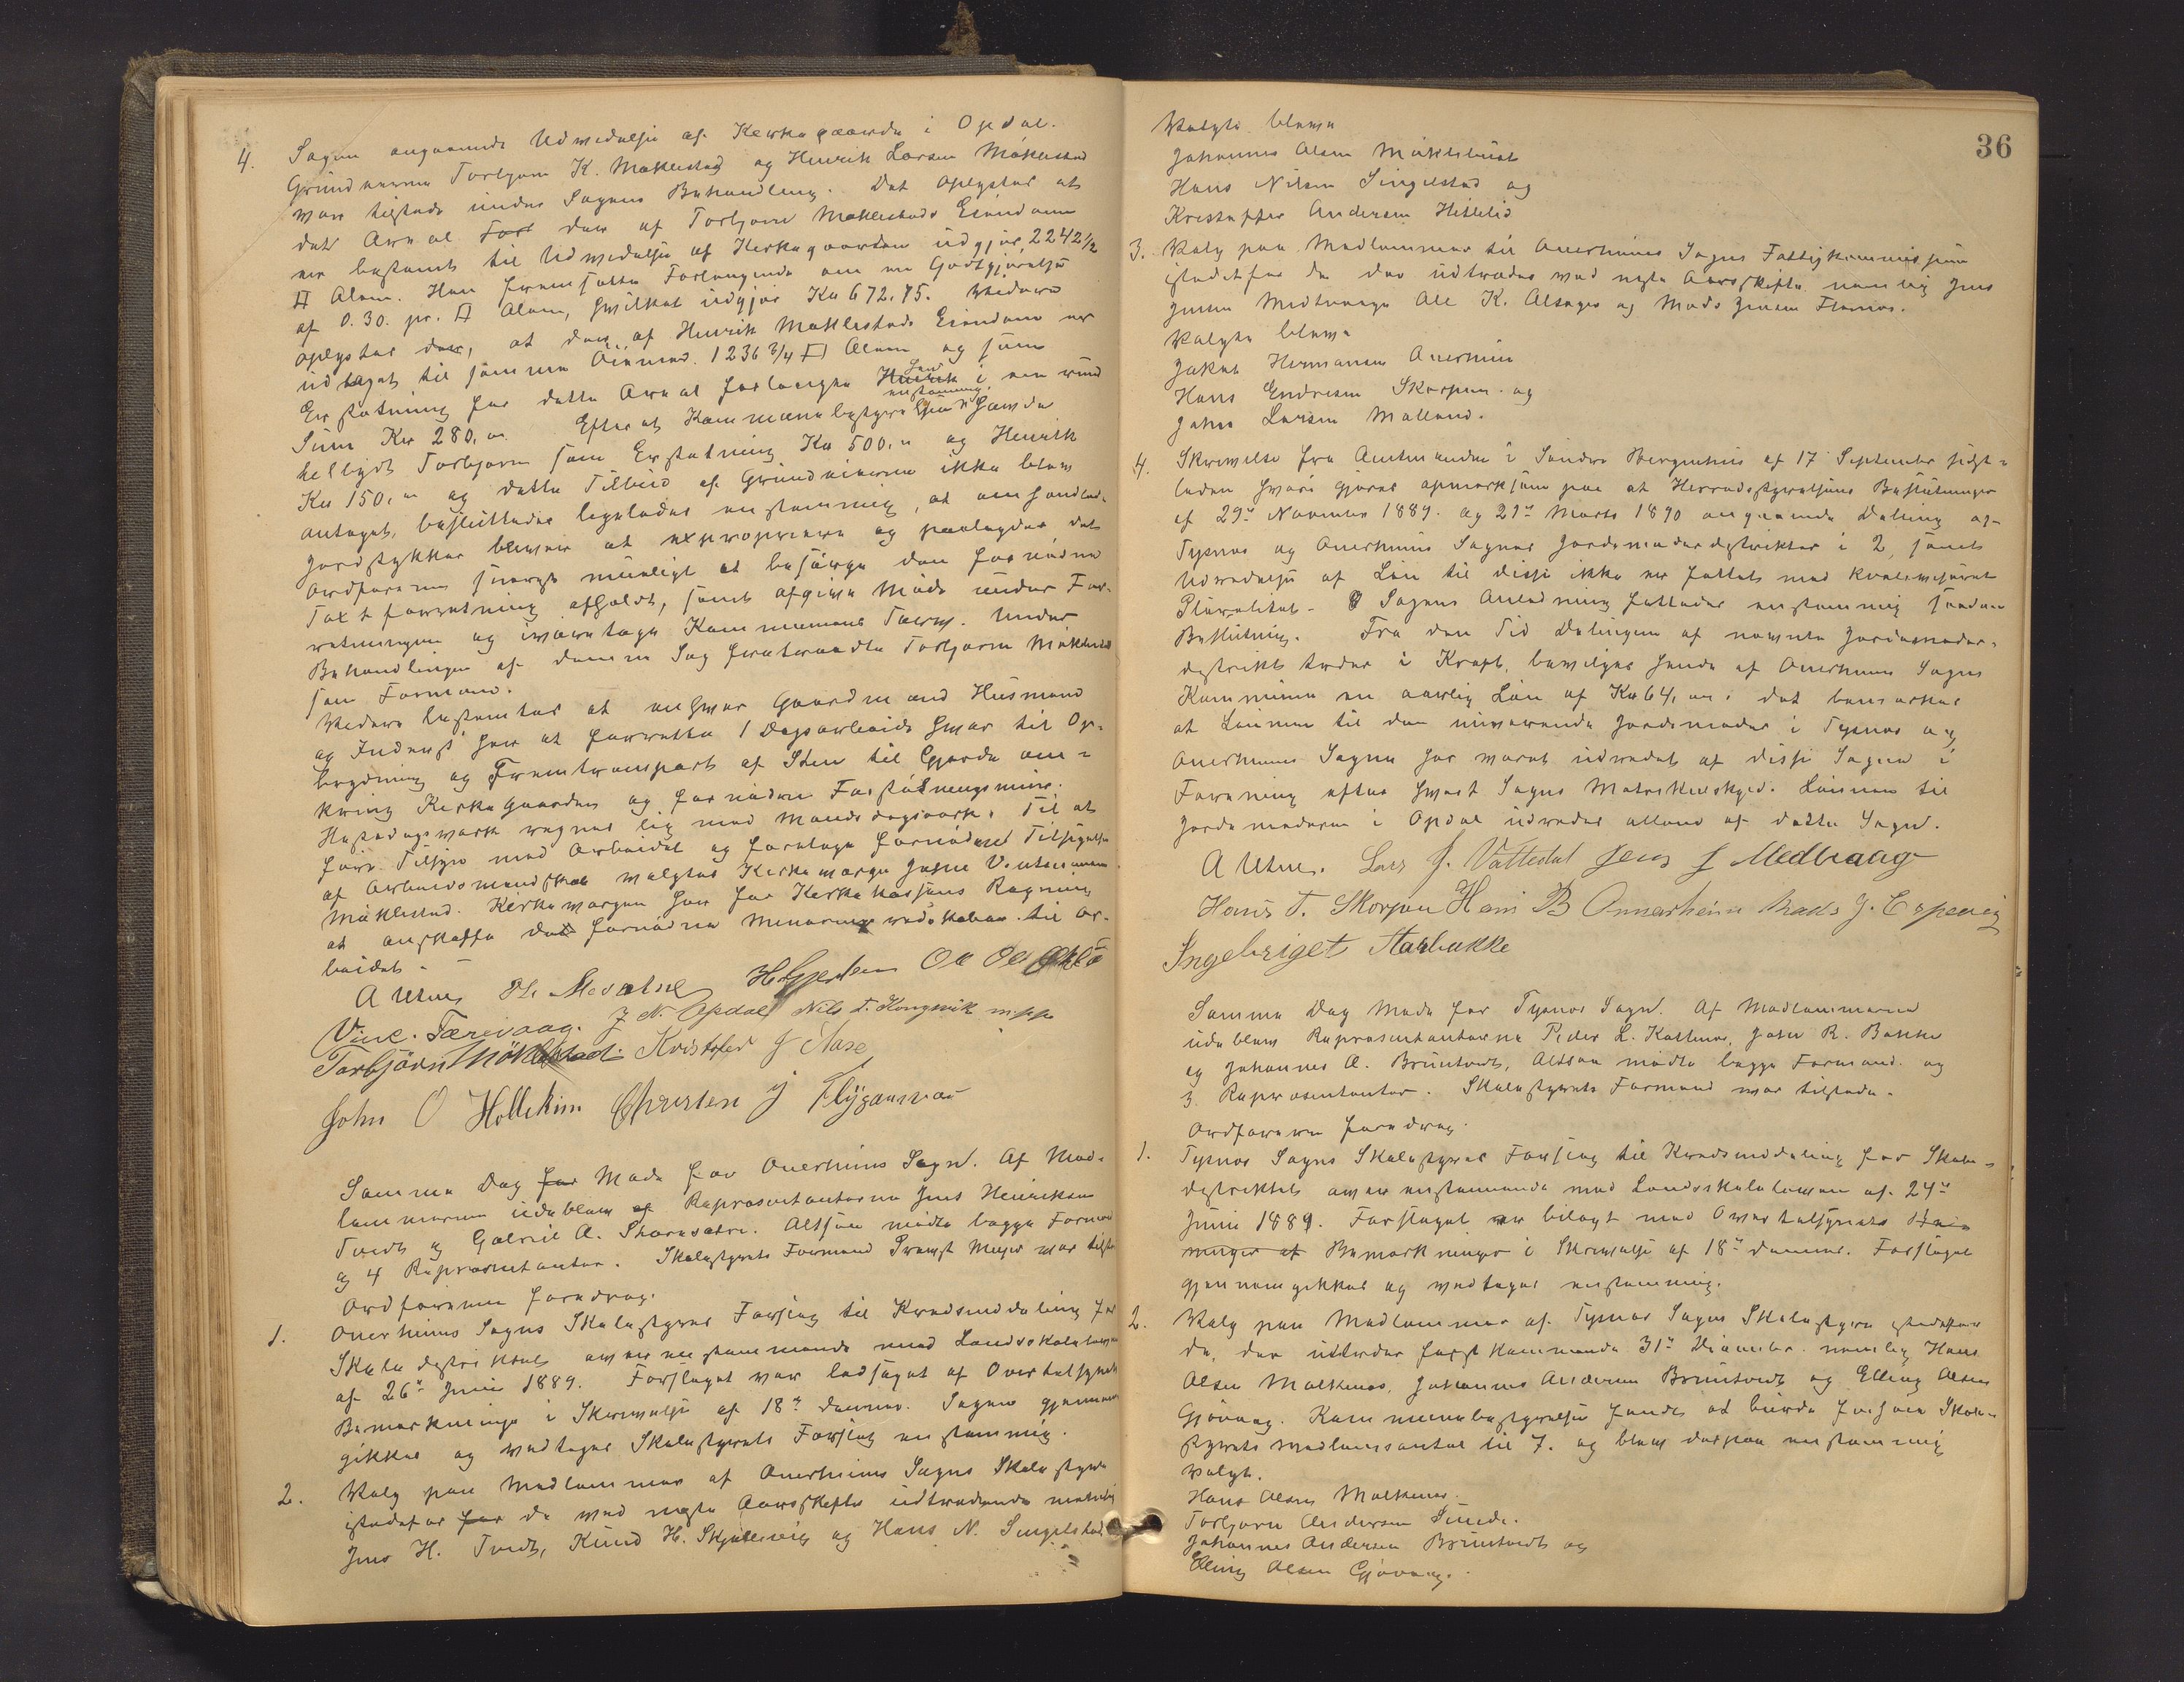 4. Sagen angaaende Udvidelse af Kerkegaarden i Opdal.
Grundeierne Torbjørn K. Møklestad og Henrik Larsen Møklestad
var tilstede under Sagens Behandling. Det oplystes at
det Areal der af Torbjørn Møklestads Eiendom
er bestemt til Udvidelse af Kerkegaarden udgjør 2242 1/2
□ Alen. Han fremsatte Forlangende om en Godtgjørelse
af 0.30. pr. □ Alen, hvilket udgjør Kr 672,75. Videre
oplystes der, at der af Henrik Møklestads Eiendom er
udtaget til samme Øiemed 1236 3/4 □ Alen og som
Erstatning for dette Areal forlangte han i en rund
Sum Kr 280,00 Efterat Kommunebestyrelsen enstemmig havde
tilbudt Torbjørn som Erstatning Kr 500,00 og Henrik
Kr 150,00 og dette Tilbud af Grundeierne ikke blev
antaget, besluttedes ligeledes enstemmig, at omhandlede
Jordstykker bliver at expropriere og paalagdes det
Ordføreren snarest muligt at besørge den fornødne
Taxtforretning afholdt, samt afgive Møde under For-
retningen og ivaretage Kommunens Tarv. Under
Behandlingen af denne Sag fratraadte Torbjørn Møklestad
som Formand.
Videre bestemtes at enhver Gaardmand Husmand
og Inderst har at forrette 1 Dagsarbeide hver til Op-
brydning og Fremtransport af Sten til Gjerde om-
kring Kerkegaarden og fornøden Forstøtningsmur.
Hestedagsværk regnes lig med Mandsdagsværk. Til at
føre Tilsyn med Arbeidet og foretage fornøden Tilsigelse
af Arbeidsmandskab valgtes Kerkeværge Johne Vintermann
Møklestad. Kerkeværgen har for Kerkekassens Regning
at anskaffe det fornødne Mineringsredskaber til Ar-
beidet.
A Utne Ol. Mevatne H Gjersten Ole Ols
Vinc. Færevaag. J N. Opdal Nils T. Kongsvik m.p.p.
Torbjørn Møklestad Kristofer J Aase
John O Hollekim Christen J Flygansvær
Samme Dag Møde for Onerheims Sogn. Af Med-
lemmerne udeblev af Repræsentanterne Jens Henriksen
Tveit og Gabriel A. Skaarsætre. Altsaa mødte begge Formænd
og 4 Repræsentanter. Skolestyrets Formand Provst Meyer var tilstede
Ordføreren foredrog.
1. Onerheims Sogns Skolestyres Forslag til Kredsinddeling for
Skoledistriktet overensstemmende med Landsskoleloven
af 26de Juni 1889. Forslaget var ledsaget af Overtilsynets
Bemærkninger i Skrivelse af 18de dennes. Sagen gjennem-
gikkes og vedtoges Skolestyrets Forslag enstemmig.
2. Valg paa Medlemmer af Onerheims Sogns Skolestyre
istedetfor de ved næste Aarsskifte udtrædende nemlig
Jens H. Tveit, Knud H. Skjellevig og Hans N. Singelstad.
36
Valgte bleve
Johannes Olsen Møklebust
Hans Nilsen Singelstad og
Kristoffer Andersen Hillelid
3. Valg paa Medlemmer til Onerheims Sogns Fattigkommission
istedetfor de der udtræder ved næste Aarsskifte nemlig Jens
Jensen Medvaage Ole K. Alsager og Mads Jensen Flornes.
Valgte bleve
Jakob Hermansen Onerheim
Hans Endresen Skorpen og
Johs Larsen Malland.
4. Skrivelse fra Amtmanden i Søndre Bergenhus af 17 September sidst-
leden hvori gjøres opmærksom paa at Herredsstyrelsens Beslutninger
af 29de November 1889 og 21de Marts 1890 angaaende Deling af
Tysnes og Onerheims Sognes Jordemoderdistrikter i 2, samt
Udredelse af Løn til disse ikke er fattet med kvalificeret
Pluralitet. I Sagens Anledning fattedes enstemmig saadan
Beslutning. Fra den Tid Delingen af nævnte Jordemoder-
distrikt træder i Kraft, bevilges hende af Onerheims Sogns
Kommune en aarlig Løn af Kr 64,00. det bemærkes
at Lønnen til den nuværende Jordemoder i Tysnes og
Onerheims Sogne har været udredet af disse Sogne i
Forening efter hvert Sogns Matrikulskyld. Lønnen til
Jordemoderen i Opdal udredes allene af dette Sogn.
A Utne. Lars J. Vattedal Jens J Medvaage
Hans T. Skorpen Hans B Onnarheim Mads J. Espevig
Ingebrigt Aarbakke
Samme Dag Møde for Tysnes Sogn. Af Medlemmerne
udeblev Repræsentanterne Peder L. Kattnes, John R. Bakke
og Johannes A. Bruntveit, Altsaa mødte begge Formænd og
3 Repræsentanter. Skolestyrets Formand var tilstede.
Ordføreren foredrog.
1. Tysnes Sogns Skolestyres Forslag til Kredsinddeling for Skole-
distriktet overensstemmende med Landsskoleloven af 24de
Juni 1889. Forslaget er bilagt med Overtilsynets
Bemærkninger i Skrivelse af 18de dennes. Forslaget
gjennemgikkes og vedtoges enstemmig.
2. Valg paa Medlemmer af Tysnes Sogns Skolestyre istedetfor
de, der udtræder førstkommende 31te December nemlig Hans
Olsen Malkenes, Johannes Andersen Bruntveit og Elling Olsen
Gjøvaag. Kommunebestyrelsen fandt at burde forhøie Skole-
styrets Medlemsantal til 7. og blev derpaa enstemmig
Valgt.
Hans Olsen Malkenes.
Torbjørn Andersen Sunde.
Johannes Andersen Bruntveit og
Elling Olsen Gjøvaag.